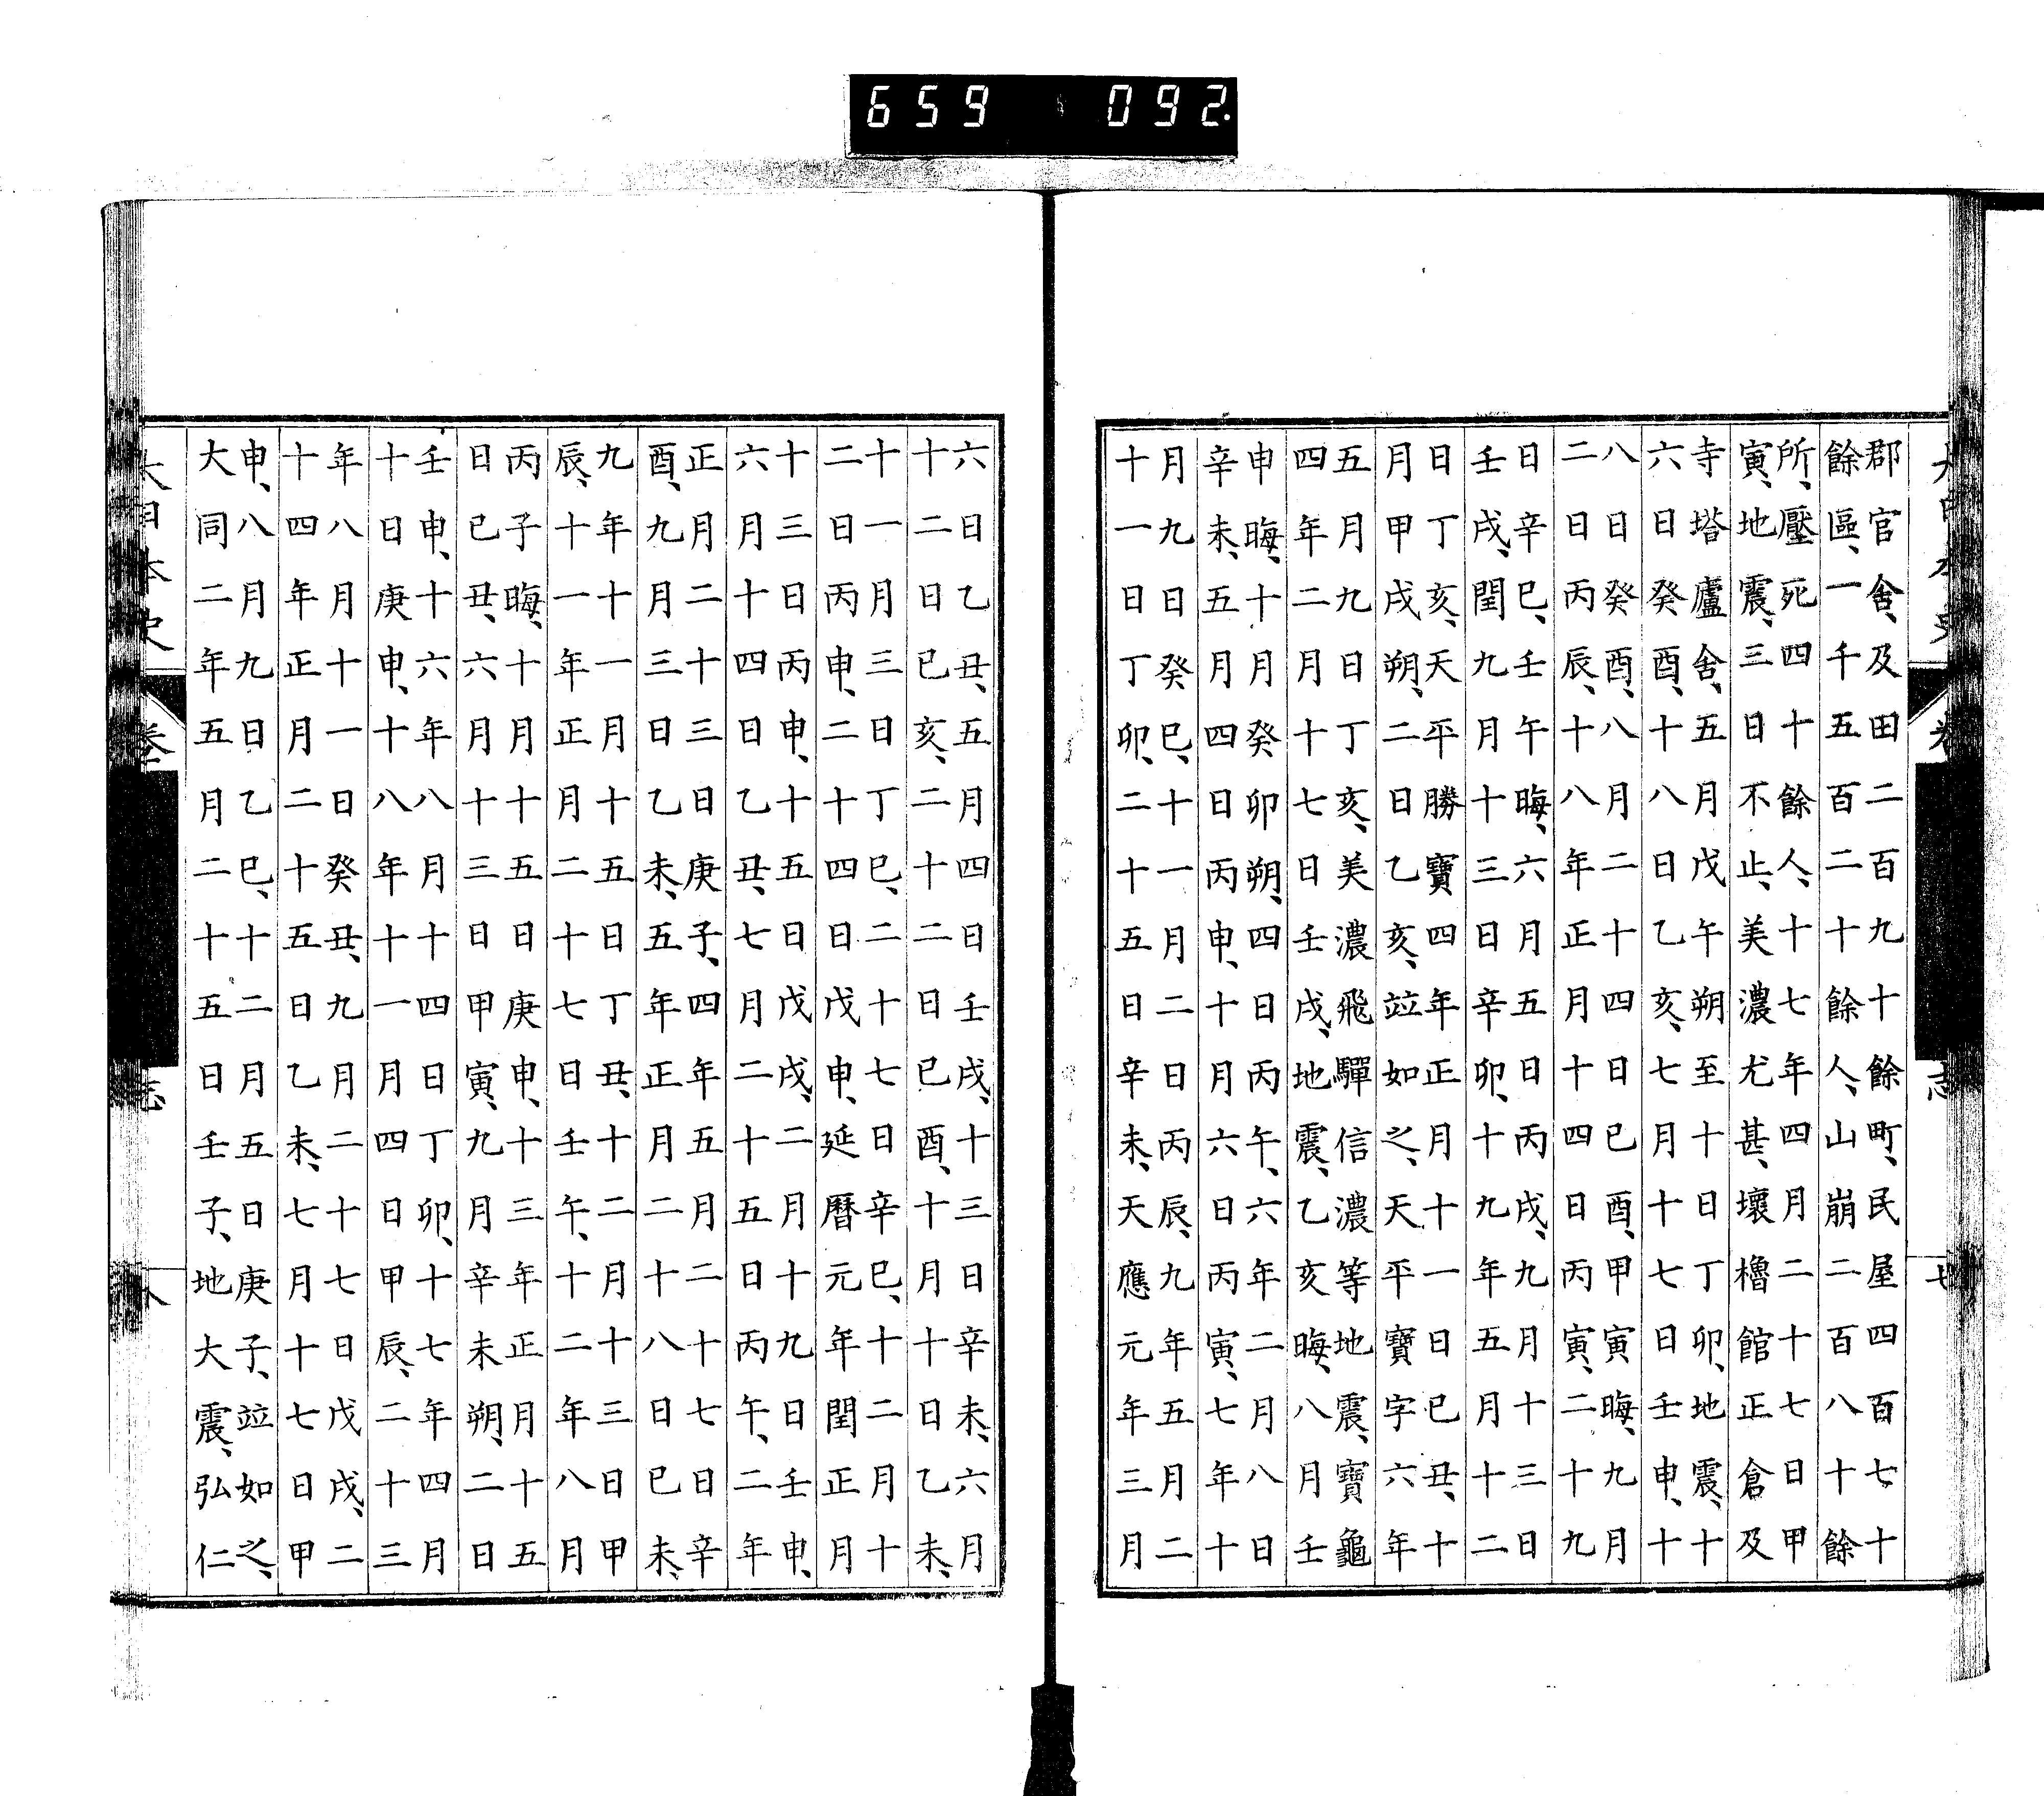 659 092
大日本史 卷 志 七
郡官舍、及田二百九十餘町、民屋四百七十
餘區、一千五百二十餘人、山崩二百八十餘
所、壓死四十餘人、十七年四月二十七日甲
寅、地震、三日不止、美濃尤甚、壞櫓館正倉及
寺塔廬舍、五月戊午朔至十日丁卯、地震、十
六日癸酉、十八日乙亥、七月十七日壬申、十
八日癸酉、八月二十四日己酉、甲寅晦、九月
二日丙辰、十八年正月十四日丙寅、二十九
日辛巳、壬午晦、六月五日丙戌、九月十三日
壬戌、閏九月十三日辛卯、十九年五月十二
日丁亥、天平勝寶四年正月十一日己丑、十
月甲戌朔、二日乙亥、竝如之、天平寶字六年
五月九日丁亥、美濃飛驒信濃等地震、寶龜
四年二月十七日壬戌、地震、乙亥晦、八月壬
申晦、十月癸卯朔、四日丙午、六年二月八日
辛未、五月四日丙申、十月六日丙寅、七年十
月九日癸巳、十一月二日丙辰、九年五月二
十一日丁卯、二十五日辛未、天應元年三月
六日乙丑、五月四日壬戌、十三日辛未、六月
十二日己亥、二十二日己酉、十月十日乙未、
十一月三日丁巳、二十七日辛巳、十二月十
二日丙申、二十四日戊申、延曆元年閏正月
十三日丙申、十五日戊戌、二月十九日壬申、
六月十四日乙丑、七月二十五日丙午、二年
正月二十三日庚子、四年五月二十七日辛
酉、九月三日乙未、五年正月二十八日己未、
九年十一月十五日丁丑、十二月十三日甲
辰、十一年正月二十七日壬午、十二年八月
丙子晦、十月十五日庚申、十三年正月十五
日己丑、六月十三日甲寅、九月辛未朔、二日
壬申、十六年八月十四日丁卯、十七年四月
十日庚申、十八年十一月四日甲辰、二十三
年八月十一日癸丑、九月二十七日戊戌、二
十四年正月二十五日乙未、七月十七日甲
申、八月九日乙巳、十二月五日庚子、竝如之、
大同二年五月二十五日壬子、地大震、弘仁
大日本史 卷 志 八